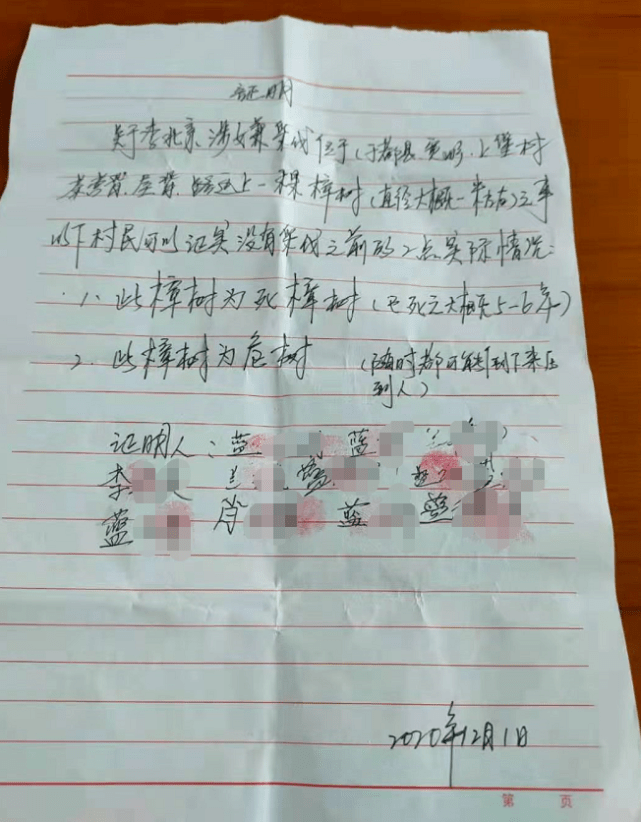 证明
关于李北京涉嫌砍伐位于(于都县 上堡村
屋背 路边上一棵樟树(直径大概一米左右)之事
以下村民可以证实没有砍伐之前的2点实际情况:
1、此樟树为死樟树(已死亡大概5-6年)
2、此樟树为危树(随时都可能倒下来压
到人)
证明人:蓝 蓝
李
蓝 肖 蓝
2020年12月1日
第 页